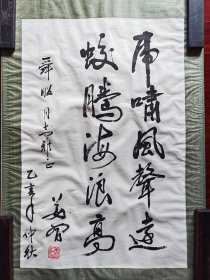 虎啸風聲遠
蛟騰海浪高
舜 同志雅正
乙亥年仲秋